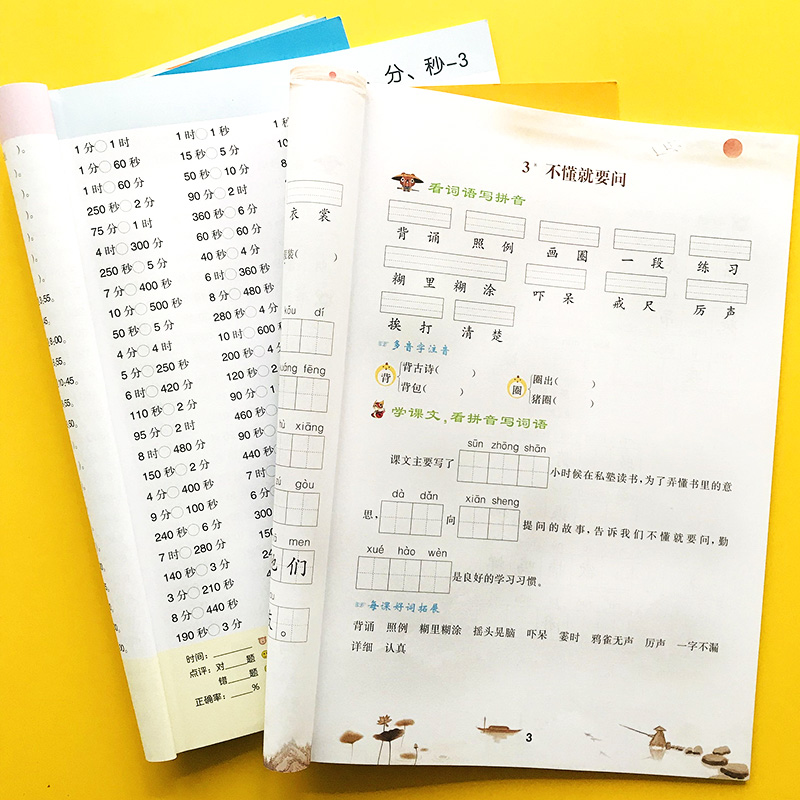 、分、秒-3
1分○1时
1分○60秒
1时○60分
250秒○2分
75分○1时
4时○300分
250秒○5分
7分○400秒
10分○500秒
50秒○5分
4分○4时
5分○250秒
6时○420分
110秒○2分
95分○2时
8时○480分
150秒○2分
4分○400秒
9分○100秒
240秒○6分
7时○280分
140秒○3分
3分○210秒
8分○440秒
190秒○3分
1时○1秒
15秒○5分
50秒○10分
90分○2时
360秒○6分
60秒○60分
40秒○4分
6时○360秒
8分○480秒
280秒○4
10时○600
200秒○4
120秒○2
90分○1
460秒
90秒
440
7时
6分
时间：
点评：对 题
错 题
正确率： %
衣 裳
dí
fēng
xiāng
gòu
men
们
。
3* 不懂就要问
看词语写拼音
背 诵 照 例 画 圈 一 段 练 习
糊 里 糊 涂 吓 呆 戒 尺 厉 声
挨 打 清 楚
多音字注音
背 背古诗( ) 背包( )
圈 圈出( ) 猪圈( )
学课文，看拼音写词语
sūn zhōng shān
课文主要写了 小时候在私塾读书，为了弄懂书里的意
dà dǎn xiān sheng
思， 向 提问的故事，告诉我们不懂就要问，勤
xué hào wèn
是良好的学习习惯。
每课好词拓展
背诵 照例 糊里糊涂 摇头晃脑 吓呆 霎时 鸦雀无声 厉声 一字不漏
详细 认真
3